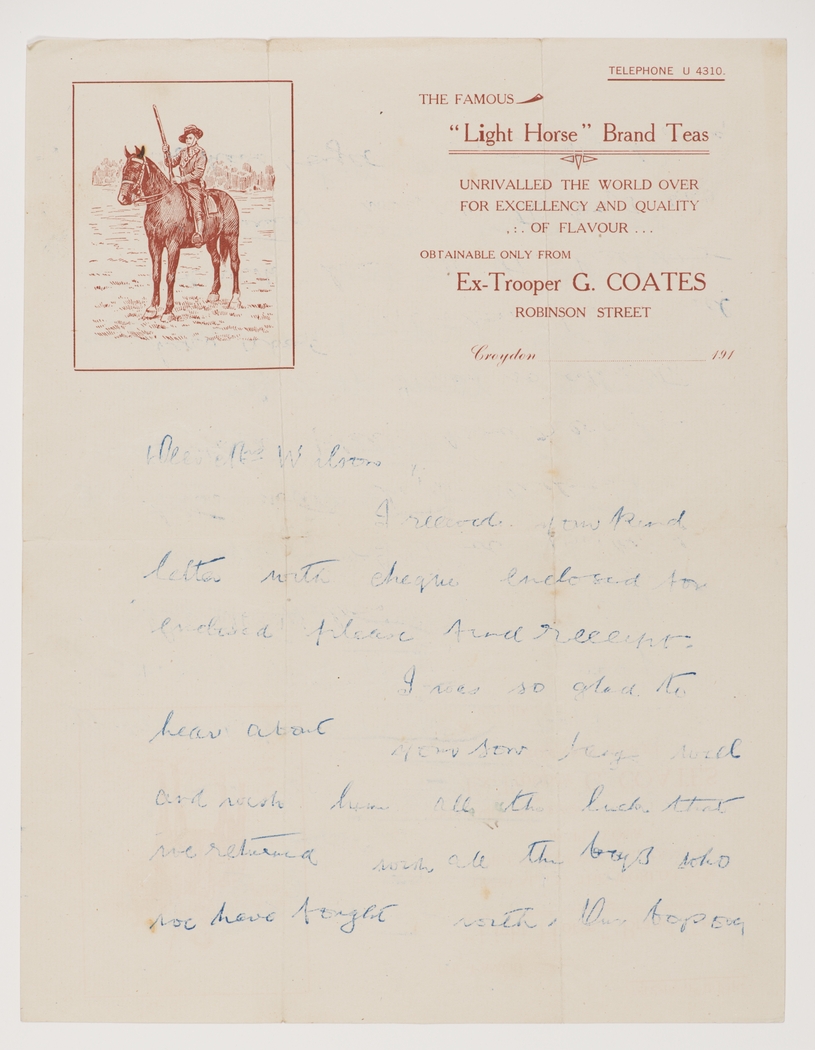 TELEPHONE U 4310.
THE FAMOUS
"Light Horse" Brand Teas
UNRIVALLED THE WORLD OVER
FOR EXCELLENCY AND QUALITY
.:. OF FLAVOUR ...
OBTAINABLE ONLY FROM
Ex-Trooper G. COATES
ROBINSON STREET
Croydon 191
Dear Mr Wilson,
I received your kind
letter with cheque enclosed for
enclosed please find receipt.
I was so glad to
hear about your son being well
and wish him all the luck that
we returned wish all the boys who
we have fought with. Our boys